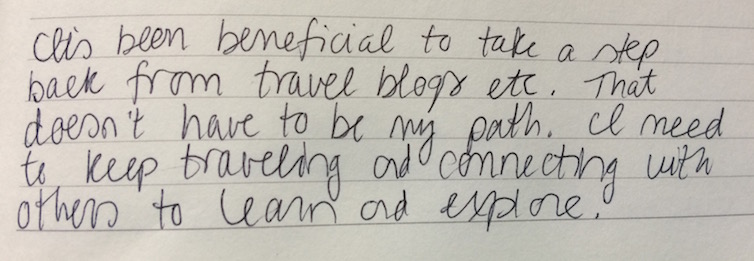 It's been beneficial to take a step
back from travel blogs etc. That
doesn't have to be my path. I need
to keep traveling and connecting with
others to learn and explore.